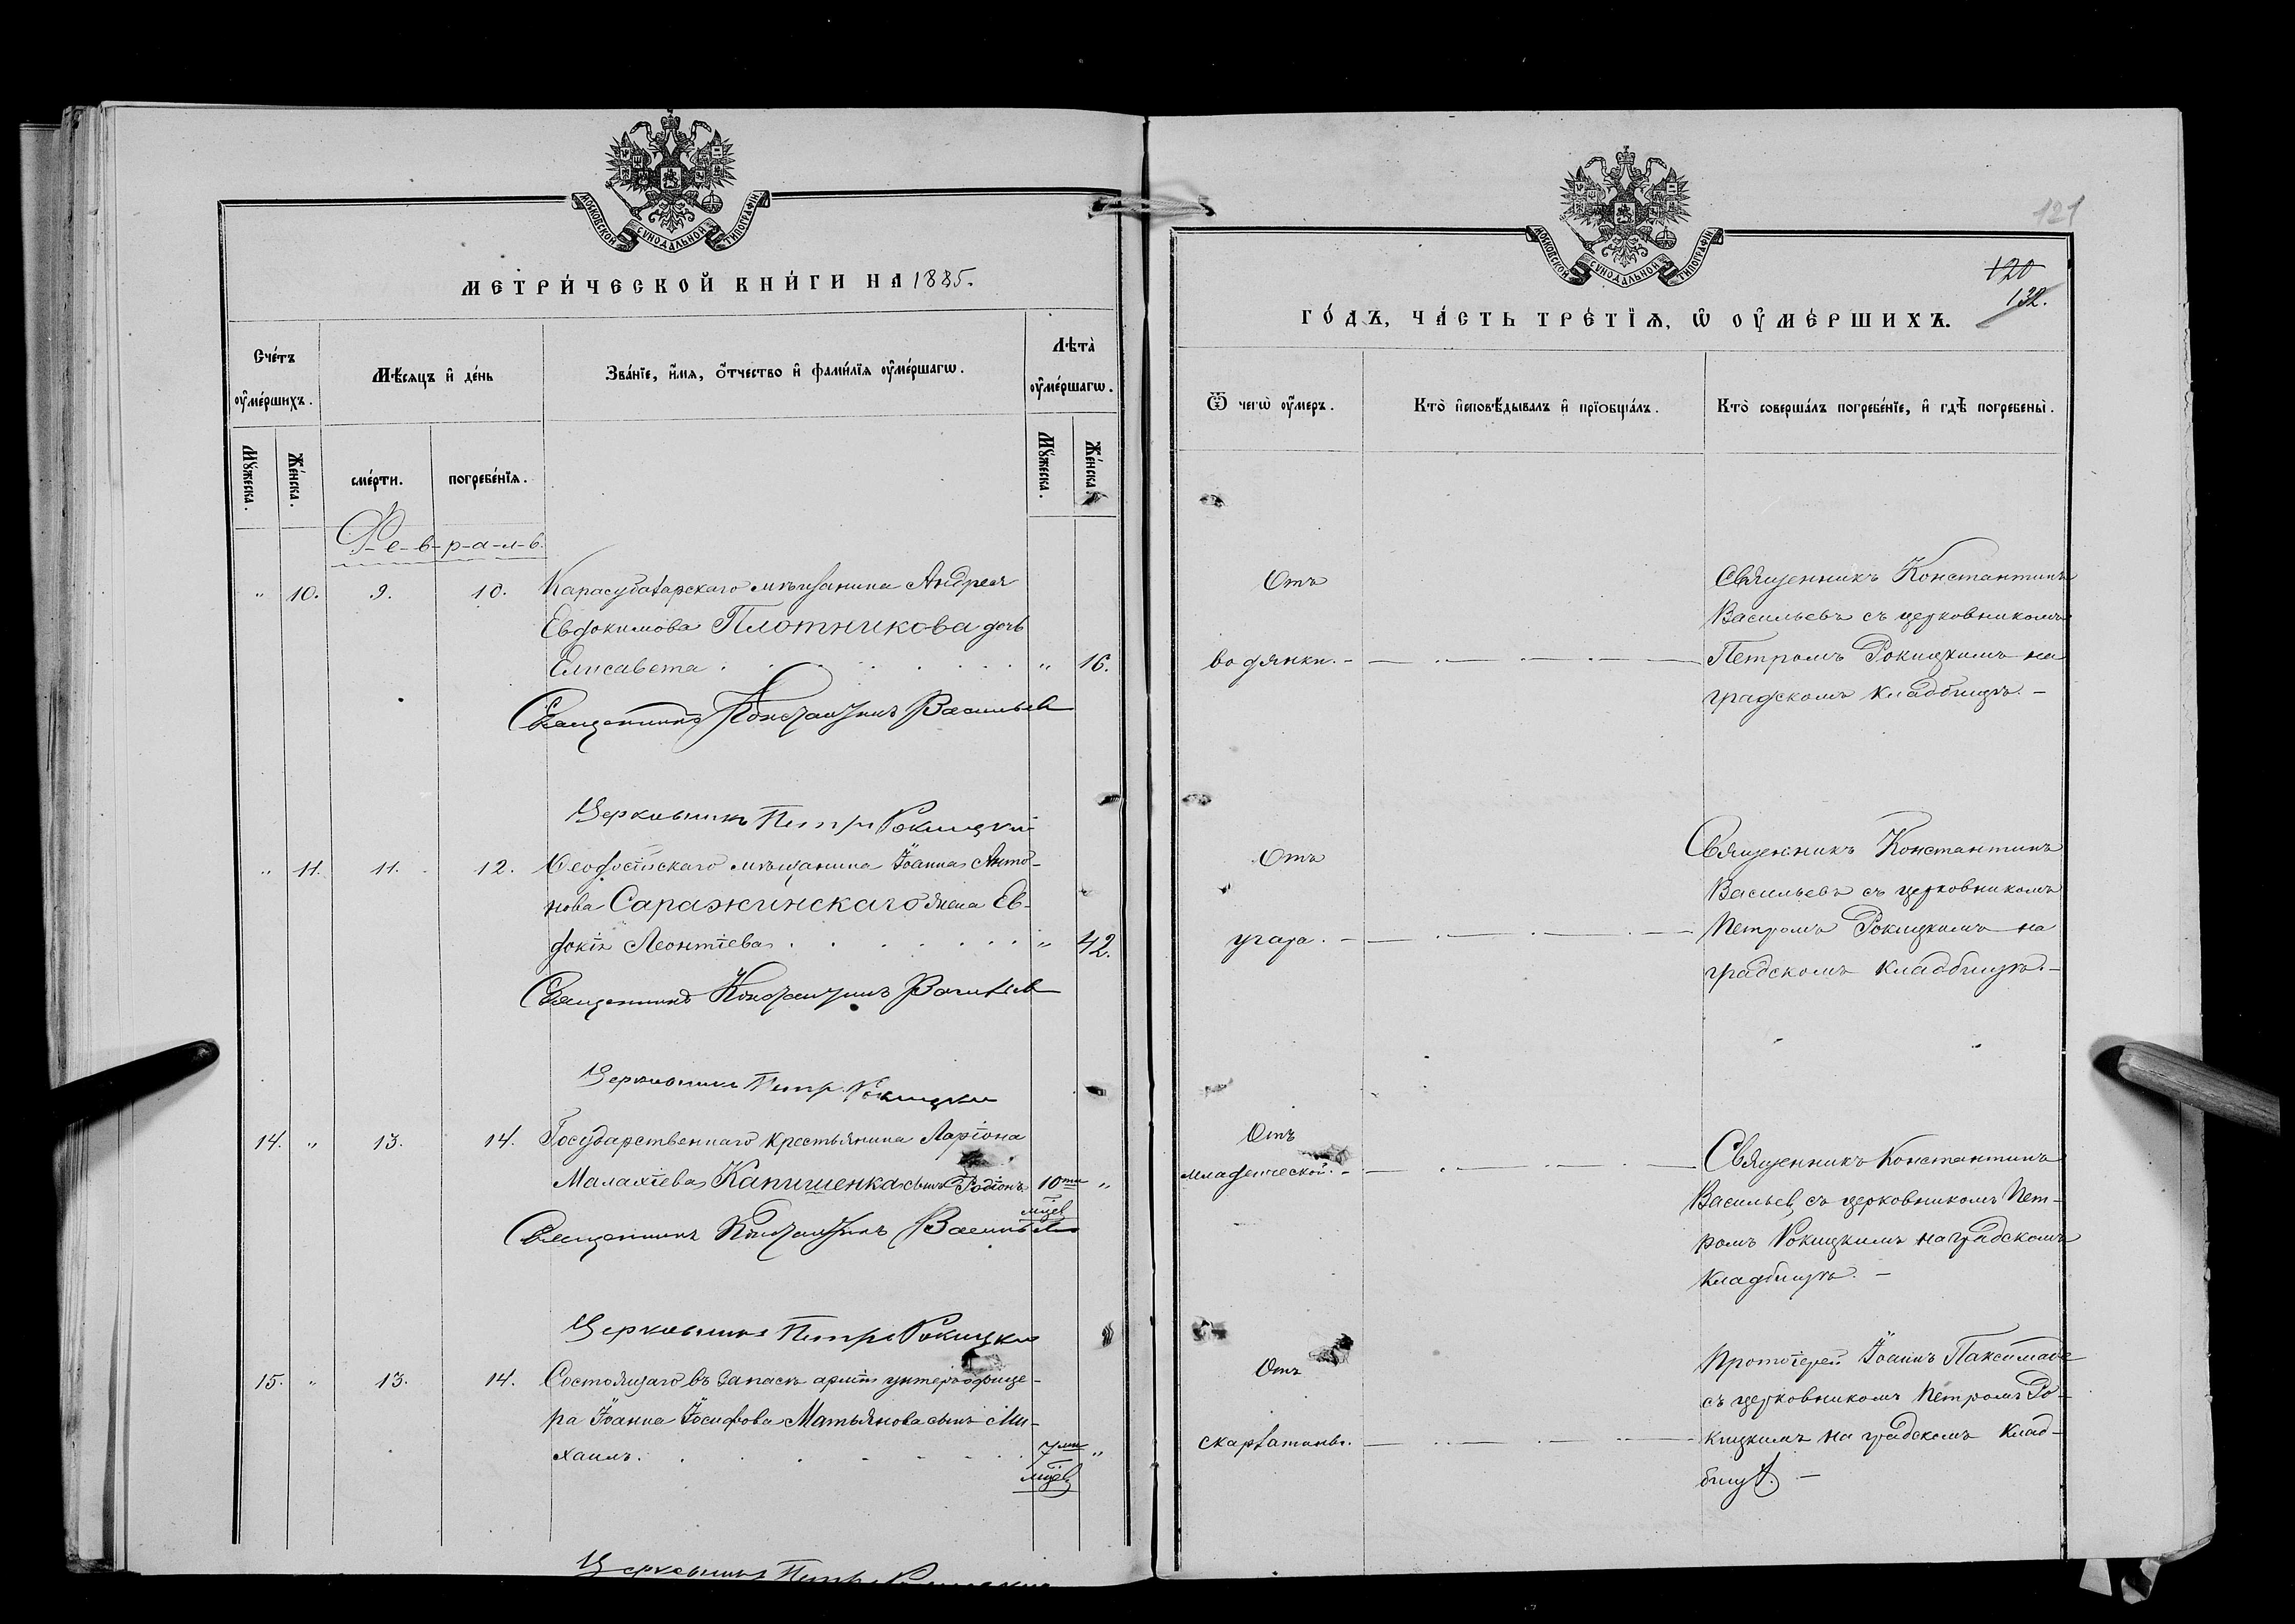 МОСКОВСКОЙ СѴНОДАЛЬНОЙ ТИПОГРАФІИ
МЕТРИ́ЧЕСКОЙ КНИ́ГИ НА 1885.
Сче́тъ ᲂу҆ме́ршихъ.
Мѣ́сяцъ и҆ де́нь
Зва́нїе, и҆́мя, ѻ҆́тчество и҆ фами́лїя ᲂу҆ме́ршагѡ.
Лѣта̀ ᲂу҆ме́ршагѡ.
Мꙋ́жеска.
Же́нска.
сме́рти.
погребе́нїя.
Мꙋ́жеска.
Же́нска.
Ф-е-в-р-а-л-ь.
„ 10. 9. 10. Карасубазарскаго мѣщанина Андрея
Евдокимова Плотникова дочь
Елисавета . . . . . . . „ 16.
Священникъ Константинъ Васильев
Церковникъ Петръ Рокицкій
„ 11. 11. 12. Ѳеодосійскаго мѣщанина Іоанна Анто-
нова Саражинскаго жена Ев-
докія Леонтіева . . . . . . „ 42.
Священникъ Константинъ Васильев
Церковникъ Петръ Рокицкій
14. „ 13. 14. Государственнаго крестьянина Ларіона
Малахіева Капишенка сынъ Родіонъ 10ти „
мцев
Священникъ Константинъ Васильев
Церковникъ Петръ Рокицкій
15. „ 13. 14. Состоящаго въ запасѣ арміи унтерофице-
ра Іоанна Іосифова Матьянова сынъ Ми-
хаилъ. . . . . . . . 7ми „
мцев
Церковникъ Петръ Рокицкій
МОСКОВСКОЙ СѴНОДАЛЬНОЙ ТИПОГРАФІИ
121
120
132.
ГО́ДЪ, ЧА́СТЬ ТРЕ́ТЇѦ, Ѡ҆ ОУ҆МЕ́РШИХЪ.
Ѿ чегѡ̀ ᲂу҆́меръ.
Кто̀ и҆сповѣ́дывалъ и҆ прїобща́лъ.
Кто̀ соверша́лъ погребе́нїе, и҆ гдѣ̀ погребены̀.
Отъ
водянки. -
Священникъ Константинъ
Васильевъ съ церковникомъ
Петромъ Рокицкимъ на
градскомъ кладбищѣ. -
Отъ
угара. -
Священникъ Константинъ
Васильевъ съ церковникомъ
Петромъ Рокицкимъ на
градскомъ кладбищѣ. -
Отъ
младенческой. -
Священникъ Константинъ
Васильевъ съ церковникомъ Пет-
ромъ Рокицкимъ на градскомъ
кладбищѣ. -
Отъ
скарлатины.
Протоіерей Іоаннъ Паксимаде
съ церковникомъ Петромъ Ро-
кицкимъ на градскомъ клад-
бищѣ. -